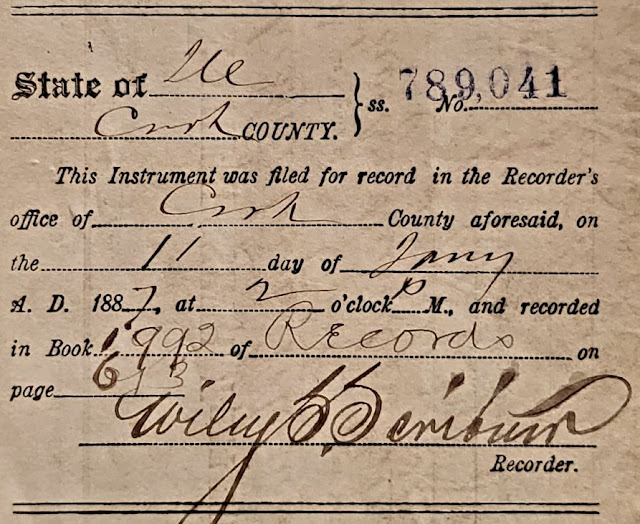 State of Ill } ss. No. 789,041
Cook COUNTY.
This Instrument was filed for record in the Recorder's
office of Cook County aforesaid, on
the 11 day of Jany
A. D. 1887, at 2 o'clock P M., and recorded
in Book 1992 of Records on
page 613
Wiley S Scribner
Recorder.